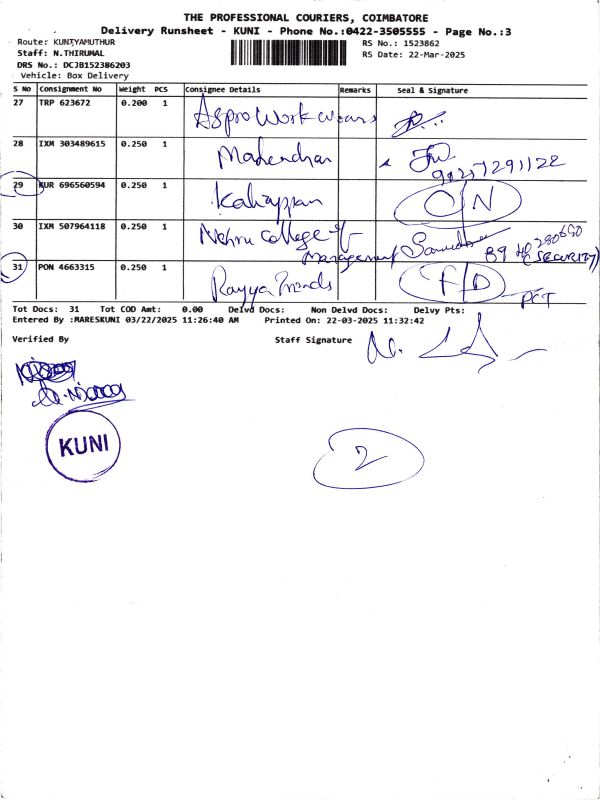 THE PROFESSIONAL COURIERS, COIMBATORE
Delivery Runsheet - KUNI - Phone No.:0422-3505555 - Page No.:3
Route: KUNIYAMUTHUR
RS No.: 1523862
Staff: N.THIRUMAL
RS Date: 22-Mar-2025
DRS No.: DCJB152386203
Vehicle: Box Delivery
S No Consignment No Weight PCS Consignee Details Remarks Seal & Signature
27 TRP 623672 0.200 1 Aspro Work wears
28 IXM 303489615 0.250 1 Mahendran
29 KUR 696560594 0.250 1 Kaliappan O/N
30 IXM 507964118 0.250 1 Nehru College of
Management (SECURITY)
31 PON 4663315 0.250 1 F/D
Tot Docs: 31 Tot COD Amt: 0.00 Delvd Docs: Non Delvd Docs: Delvy Pts:
Entered By :MARESKUNI 03/22/2025 11:26:40 AM Printed On: 22-03-2025 11:32:42
Verified By Staff Signature
KUNI
2